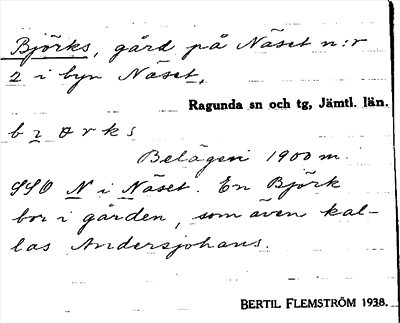 Björks, gård på Näset n:r
2 i byn Näset,
Ragunda sn och tg, Jämtl. län.
Belägen 1900 m.
SSO N i Näset. En Björk
bor i gården, som även kal-
las Andersjohans.
BERTIL FLEMSTRÖM 1938.